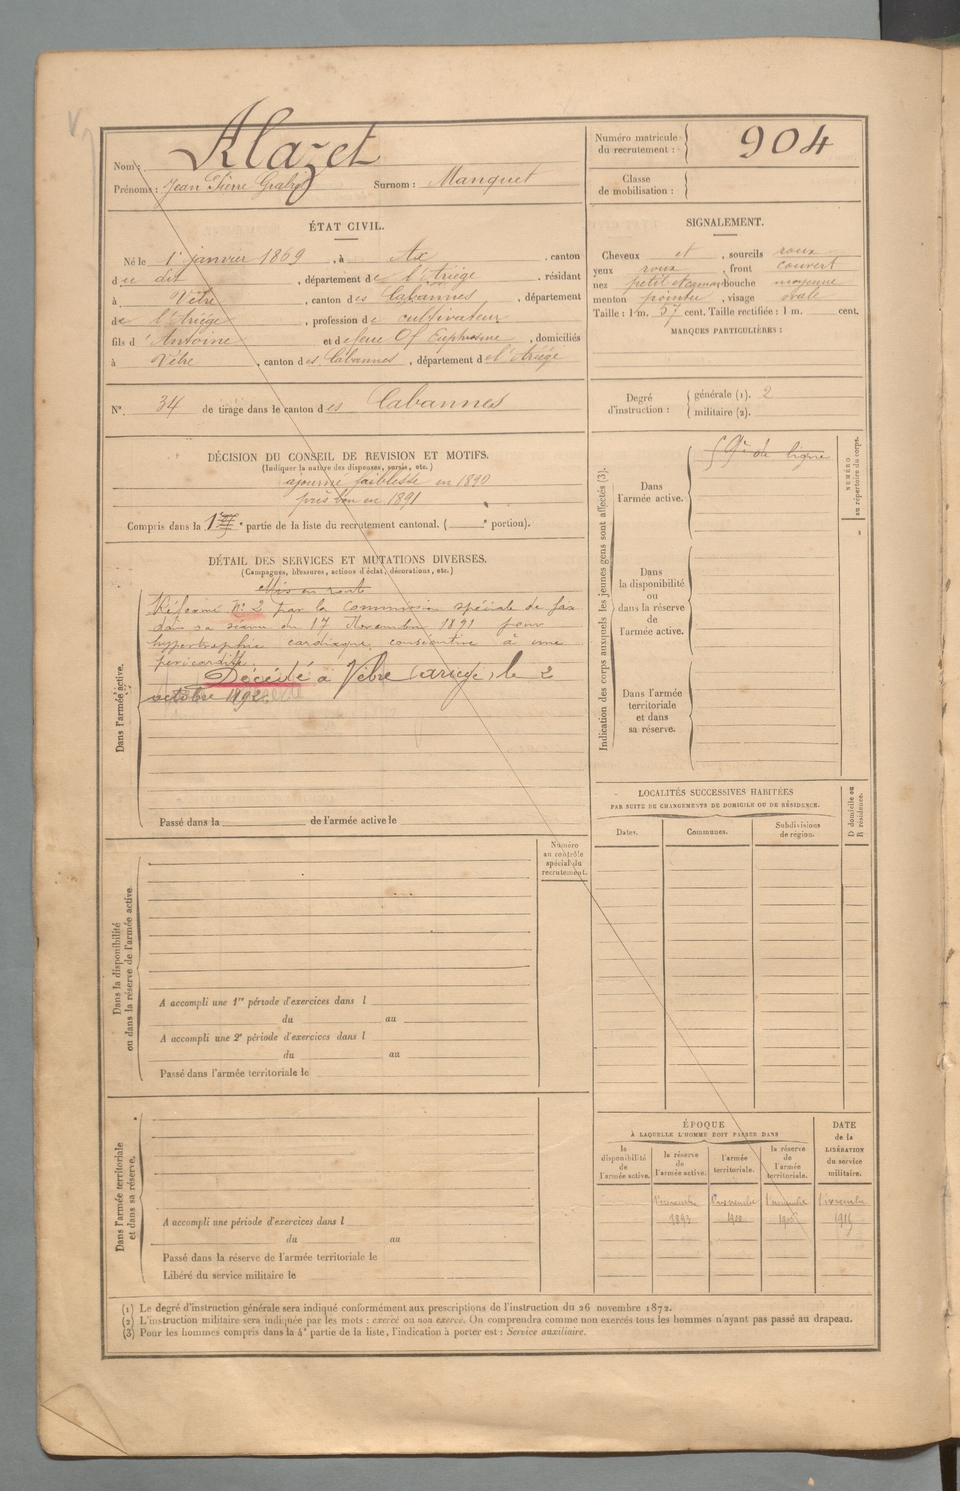 Nom : Alazet
Prénoms : Jean Pierre Surnom : Manquet
Numéro matricule du recrutement : 904
Classe de mobilisation :
ÉTAT CIVIL.
Né le 1er janvier 1869, à Ax, canton
d u dit, département de l'Ariège, résidant
à Vèbre, canton des Cabannes, département
de l'Ariège, profession de cultivateur
fils d'Antoine et de feue Euphrosine, domiciliés
à Vèbre, canton des Cabannes, département de l'Ariège
N° 34 de tirage dans le canton des Cabannes
DÉCISION DU CONSEIL DE REVISION ET MOTIFS.
(Indiquer la nature des dispenses, sursis, etc.)
ajourné faiblesse en 1890
pris bon en 1891
Compris dans la 1re partie de la liste du recrutement cantonal. ( e portion).
DÉTAIL DES SERVICES ET MUTATIONS DIVERSES.
(Campagnes, blessures, actions d'éclat, décorations, etc.)
Dans l'armée active.
Mis en route
Réformé N° 2 par la Commission spéciale de foix
dans sa séance du 17 Novembre 1891 pour
hypertrophie cardiaque consécutive à une
péricardite.
Décédé à Vèbre (ariège) le 2
octobre 1892.
Passé dans la de l'armée active le
Dans la disponibilité ou dans la réserve de l'armée active.
Numéro au contrôle spécial du recrutement.
A accompli une 1re période d'exercices dans l
du au
A accompli une 2e période d'exercices dans l
du au
Passé dans l'armée territoriale le
Dans l'armée territoriale et dans sa réserve.
A accompli une période d'exercices dans l
du au
Passé dans la réserve de l'armée territoriale le
Libéré du service militaire le
SIGNALEMENT.
Cheveux et, sourcils roux
yeux roux, front couvert
nez petit et, bouche moyenne
menton pointu, visage ovale
Taille : 1 m. 57 cent. Taille rectifiée : 1 m. cent.
MARQUES PARTICULIÈRES :
Degré d'instruction : générale (1). 2
militaire (2).
Indication des corps auxquels les jeunes gens sont affectés (3).
NUMÉRO au répertoire du corps.
Dans l'armée active.
de ligne
Dans la disponibilité ou dans la réserve de l'armée active.
Dans l'armée territoriale et dans sa réserve.
LOCALITÉS SUCCESSIVES HABITÉES
PAR SUITE DE CHANGEMENTS DE DOMICILE OU DE RÉSIDENCE.
D domicile ou R résidence.
Dates. Communes. Subdivisions de région.
ÉPOQUE
À LAQUELLE L'HOMME DOIT PASSER DANS
la disponibilité de l'armée active.
la réserve de l'armée active.
l'armée territoriale.
la réserve de l'armée territoriale.
DATE de la LIBÉRATION du service militaire.
1893
(1) Le degré d'instruction générale sera indiqué conformément aux prescriptions de l'instruction du 26 novembre 1872.
(2) L'instruction militaire sera indiquée par les mots : exercé ou non exercé. On comprendra comme non exercés tous les hommes n'ayant pas passé au drapeau.
(3) Pour les hommes compris dans la 4e partie de la liste, l'indication à porter est : Service auxiliaire.